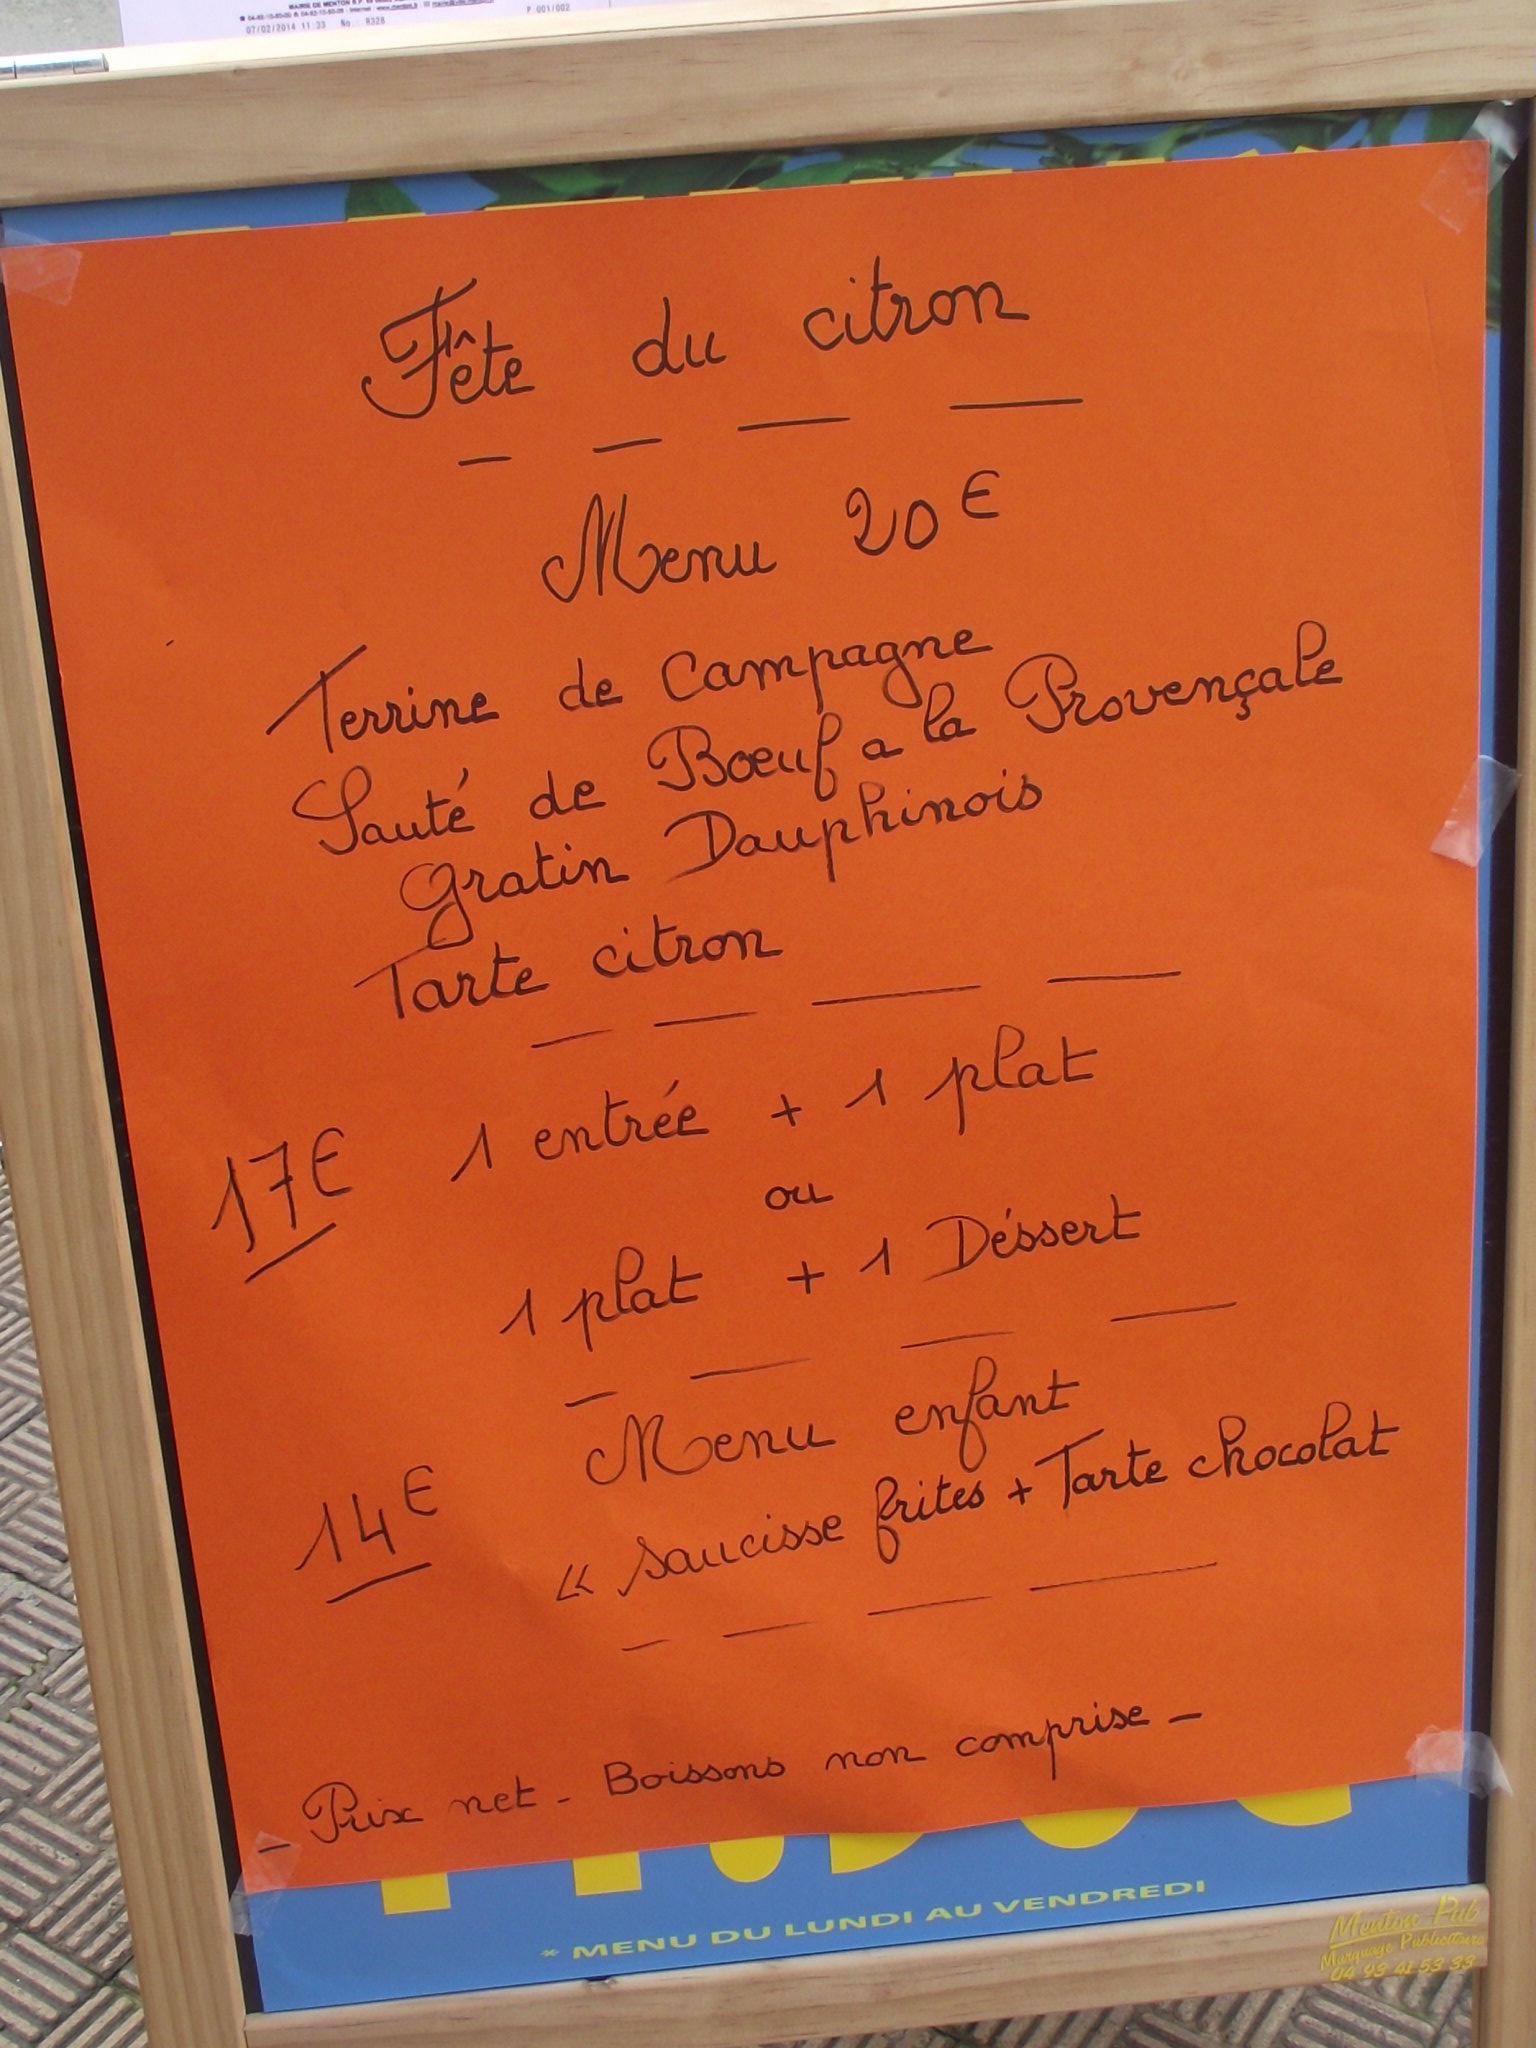 MAIRIE DE MENTON
07/02/2014 11:33 No.: R328
P 001/002
Fête du citron
Menu 20€
Terrine de Campagne
Sauté de Boeuf a la Provençale
gratin Dauphinois
Tarte citron
17€ 1 entrée + 1 plat
ou
1 plat + 1 Déssert
Menu enfant
14€ « saucisse frites + Tarte chocolat
- Prix net - Boissons non comprise -
* MENU DU LUNDI AU VENDREDI
Menton Pub
Marquage Publicitaire
04 93 41 53 33